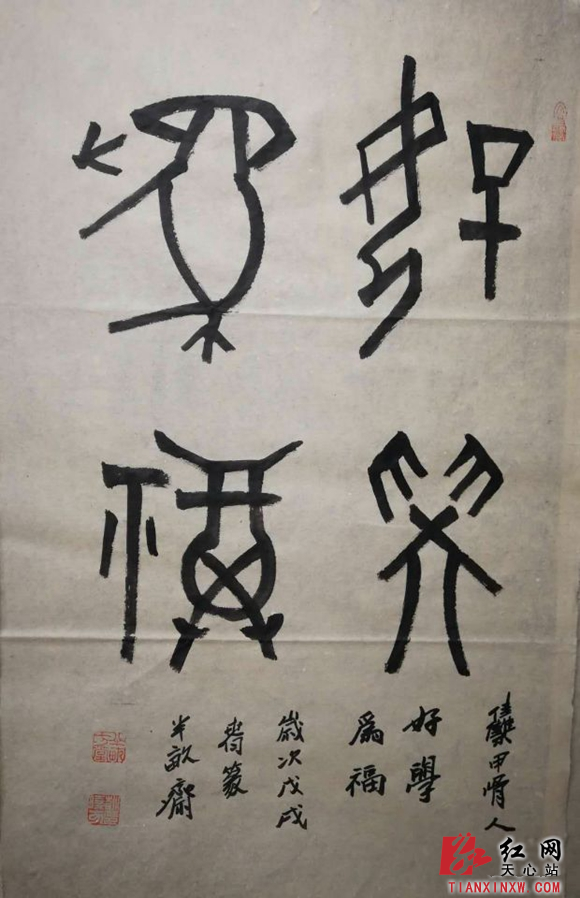 好學
爲福
甲骨
好學
爲福
歲次戊戌
篆
半畝齋
红网
天心站
TIANXINXW.COM